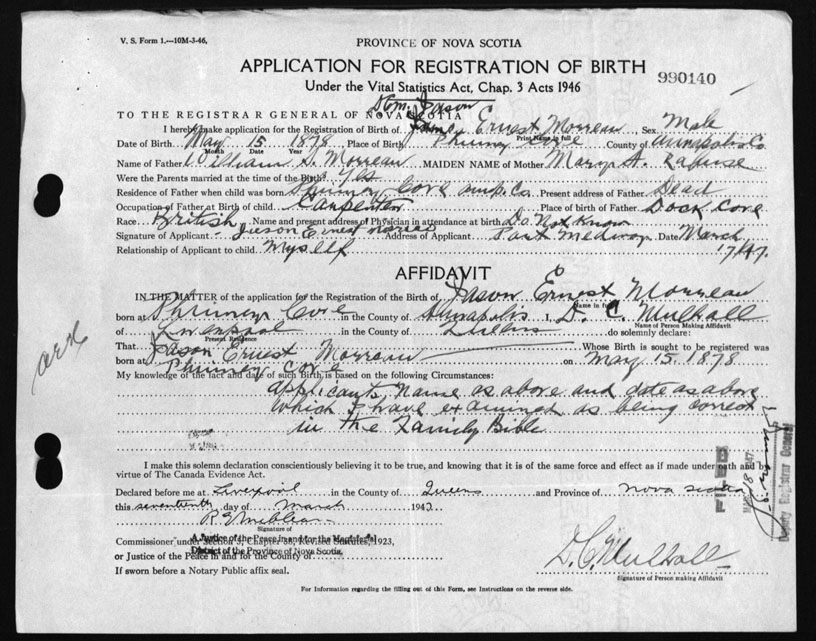 V. S. Form 1.—10M-3-46,
PROVINCE OF NOVA SCOTIA
APPLICATION FOR REGISTRATION OF BIRTH
990140
Under the Vital Statistics Act, Chap. 3 Acts 1946
Jason
TO THE REGISTRAR GENERAL OF NOVA SCOTIA
I hereby make application for the Registration of Birth of Ernest Morreau Sex Male
Print Name in full
Date of Birth May 15 1878 Place of Birth Phinney Cove County of Annapolis Co
Month Date Year
Name of Father William S. Morreau MAIDEN NAME of Mother Mary A. Rafuse
Were the Parents married at the time of the Birth? Yes
Residence of Father when child was born Phinney Cove Present address of Father Dead
Occupation of Father at Birth of child Carpenter Place of birth of Father Dock Cove
Race British Name and present address of Physician in attendance at birth Do Not Know
Signature of Applicant Ernest Address of Applicant Port Medway Date March
Relationship of Applicant to child Myself 17/47.
AFFIDAVIT
IN THE MATTER of the application for the Registration of the Birth of Jason Ernest Morreau
Name in full
born at Phinney Cove in the County of Annapolis I, D. C. Mulhall
Name of Person Making Affidavit
of Liverpool in the County of Queens do solemnly declare:
Present Residence
That Jason Ernest Morreau Whose Birth is sought to be registered was
born at Phinney Cove on May. 15. 1878
My knowledge of the fact and date of such Birth is based on the following Circumstances:
applicants Name as above and date as above
which I have examined as being correct
in the Family Bible
I make this solemn declaration conscientiously believing it to be true, and knowing that it is of the same force and effect as if made under oath and by
virtue of The Canada Evidence Act.
FILED
MAR 18 1947
Deputy Registrar General
Declared before me at Liverpool in the County of Queens and Province of Nova Scotia
this seventeenth day of March 1947
Signature of
A Justice of the Peace in and for the Magisterial
Commissioner under Section 3, Chapter 38, Revised Statutes, 1923,
District of the Province of Nova Scotia.
or Justice of the Peace in and for the County of
D. C. Mulhall
If sworn before a Notary Public affix seal.
Signature of Person making Affidavit
For Information regarding the filling out of this Form, see Instructions on the reverse side.